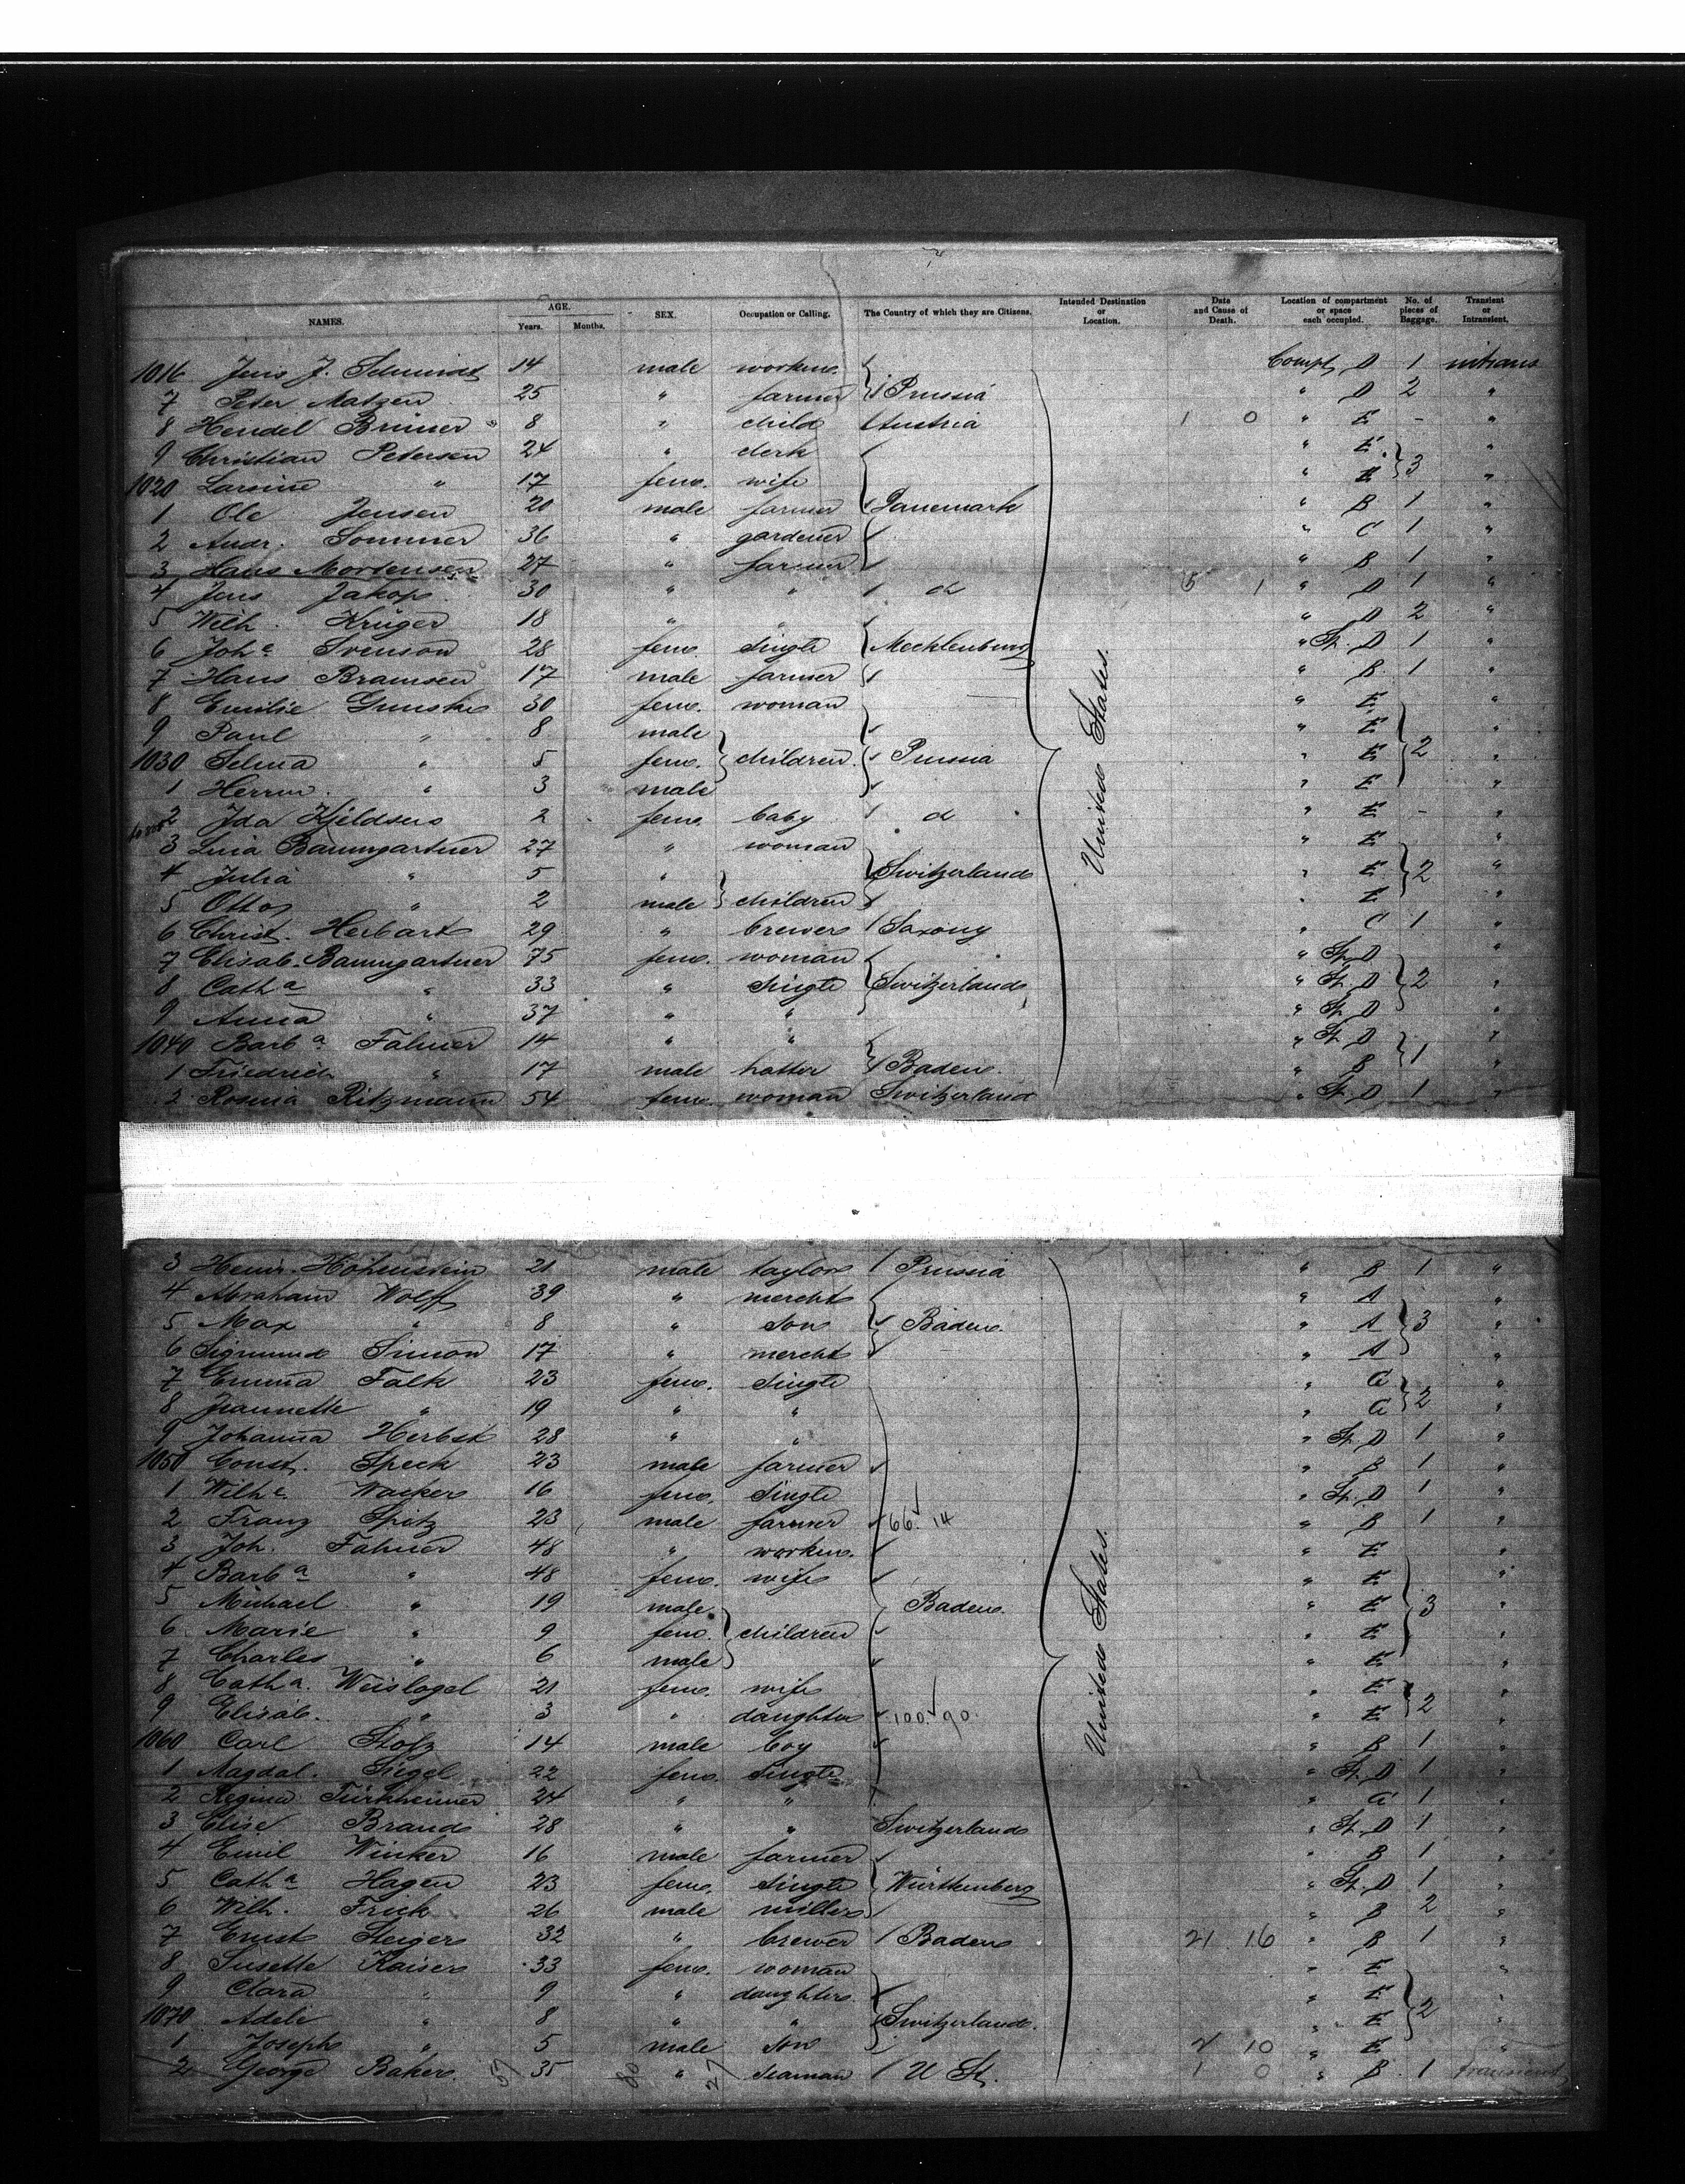 NAMES. AGE. Years. Months. SEX. Occupation or Calling. The Country of which they are Citizens. Intended Destination or Location. Date and Cause of Death. Location of compartment or space each occupied. No. of pieces of Baggage. Transient or Intransient.
1016 Jens J. Schmidt 14 male workm. Compt. D 1 intrans
7 Peter Matzen 25 " farmer Prussia " D 2 "
8 Hendel 8 " child Austria 1 0 " E - "
9 Christian Petersen 24 " clerk " E "
1020 Larsine " 17 fem. wife " E 3 "
1 Ole Jensen 20 male farmer Danemark " B 1 "
2 Andr. Sommer 36 " gardener " C 1 "
3 Hans Mortensen 27 " farmer " B 1 "
4 Jens Jakop 30 " " d 5 1 " D 1 "
5 Wilh. Krüger 18 " " " D 2 "
6 Joh a Svenson 28 fem. single Mecklenburg " St. D 1 "
7 Hans Bramsen 17 male farmer " B 1 "
8 Emilie 30 fem. woman " E "
9 Paul " 8 male " E "
1030 Selma " 5 fem. children Prussia " E 2 "
1 Herrm. " 3 male " E "
2 Ida 2 fem. baby d " E - "
3 Baumgartner 27 " woman " E "
4 Julia " 5 " Switzerland " E 2 "
5 Otto " 2 male children " E "
6 Christ. Herbart 29 " brewer Saxony " C 1 "
7 Elisab. Baumgartner 75 fem. woman " St. D "
8 Cath a " 33 " single Switzerland " St. D 2 "
9 Anna " 37 " " " St. D "
1040 Barb a Fahner 14 " " " St. D "
1 Friedrich " 17 male hatter Baden. " B 1 "
2 Rosina Ritzmann 54 fem. woman Switzerland " St. D 1 "
United States.
3 Heinr. Hohenstein 21 male taylor Prussia " B 1 "
4 Abraham Wolff 39 " mercht " A "
5 Max " 8 " son Baden. " A 3 "
6 Sigmund Simon 17 " mercht " A "
7 Emma Falk 23 fem. single " C "
8 Jeannette " 19 " " " C 2 "
9 Johanna Herbst 28 " " " St. D 1 "
1050 Const. Speck 23 male farmer " B 1 "
1 Wilh e. Wacker 16 fem. single " St. D 1 "
2 Franz Spitz 23 male farmer 66. 14 " B 1 "
3 Joh. Fahner 48 " workm. " E "
4 Barb a " 48 fem. wife " E "
5 Michael " 19 male Baden. " E 3 "
6 Marie " 9 fem. children " E "
7 Charles " 6 male " E "
8 Cath a. Weislogel 21 fem. wife " E "
9 Elisab. " 3 " daughter 100. 90 " E 2 "
1060 Carl Stolz 14 male boy " B 1 "
1 Magdal. Siegel 22 fem. single " St. D 1 "
2 Regina Türkheimer 24 " " " C 1 "
3 Elise Brand 28 " " Switzerland " St. D 1 "
4 Emil Winker 16 male farmer " B 1 "
5 Cath a Hagen 23 fem. single Würthenberg " St. D 1 "
6 Wilh. Frick 26 male miller " B 2 "
7 Ernst Steiger 32 " brewer Baden 21 16 " B 1 "
8 Susette Kaiser 33 fem. woman " E "
9 Clara " 9 " daughter. " E "
1070 Adele " 8 " " Switzerland. " E 2 "
1 Joseph " 5 male son 2 10 " E "
2 George Baker. 57 35 80 " 27 seaman U St. 1 0 " B 1 transient
United States.